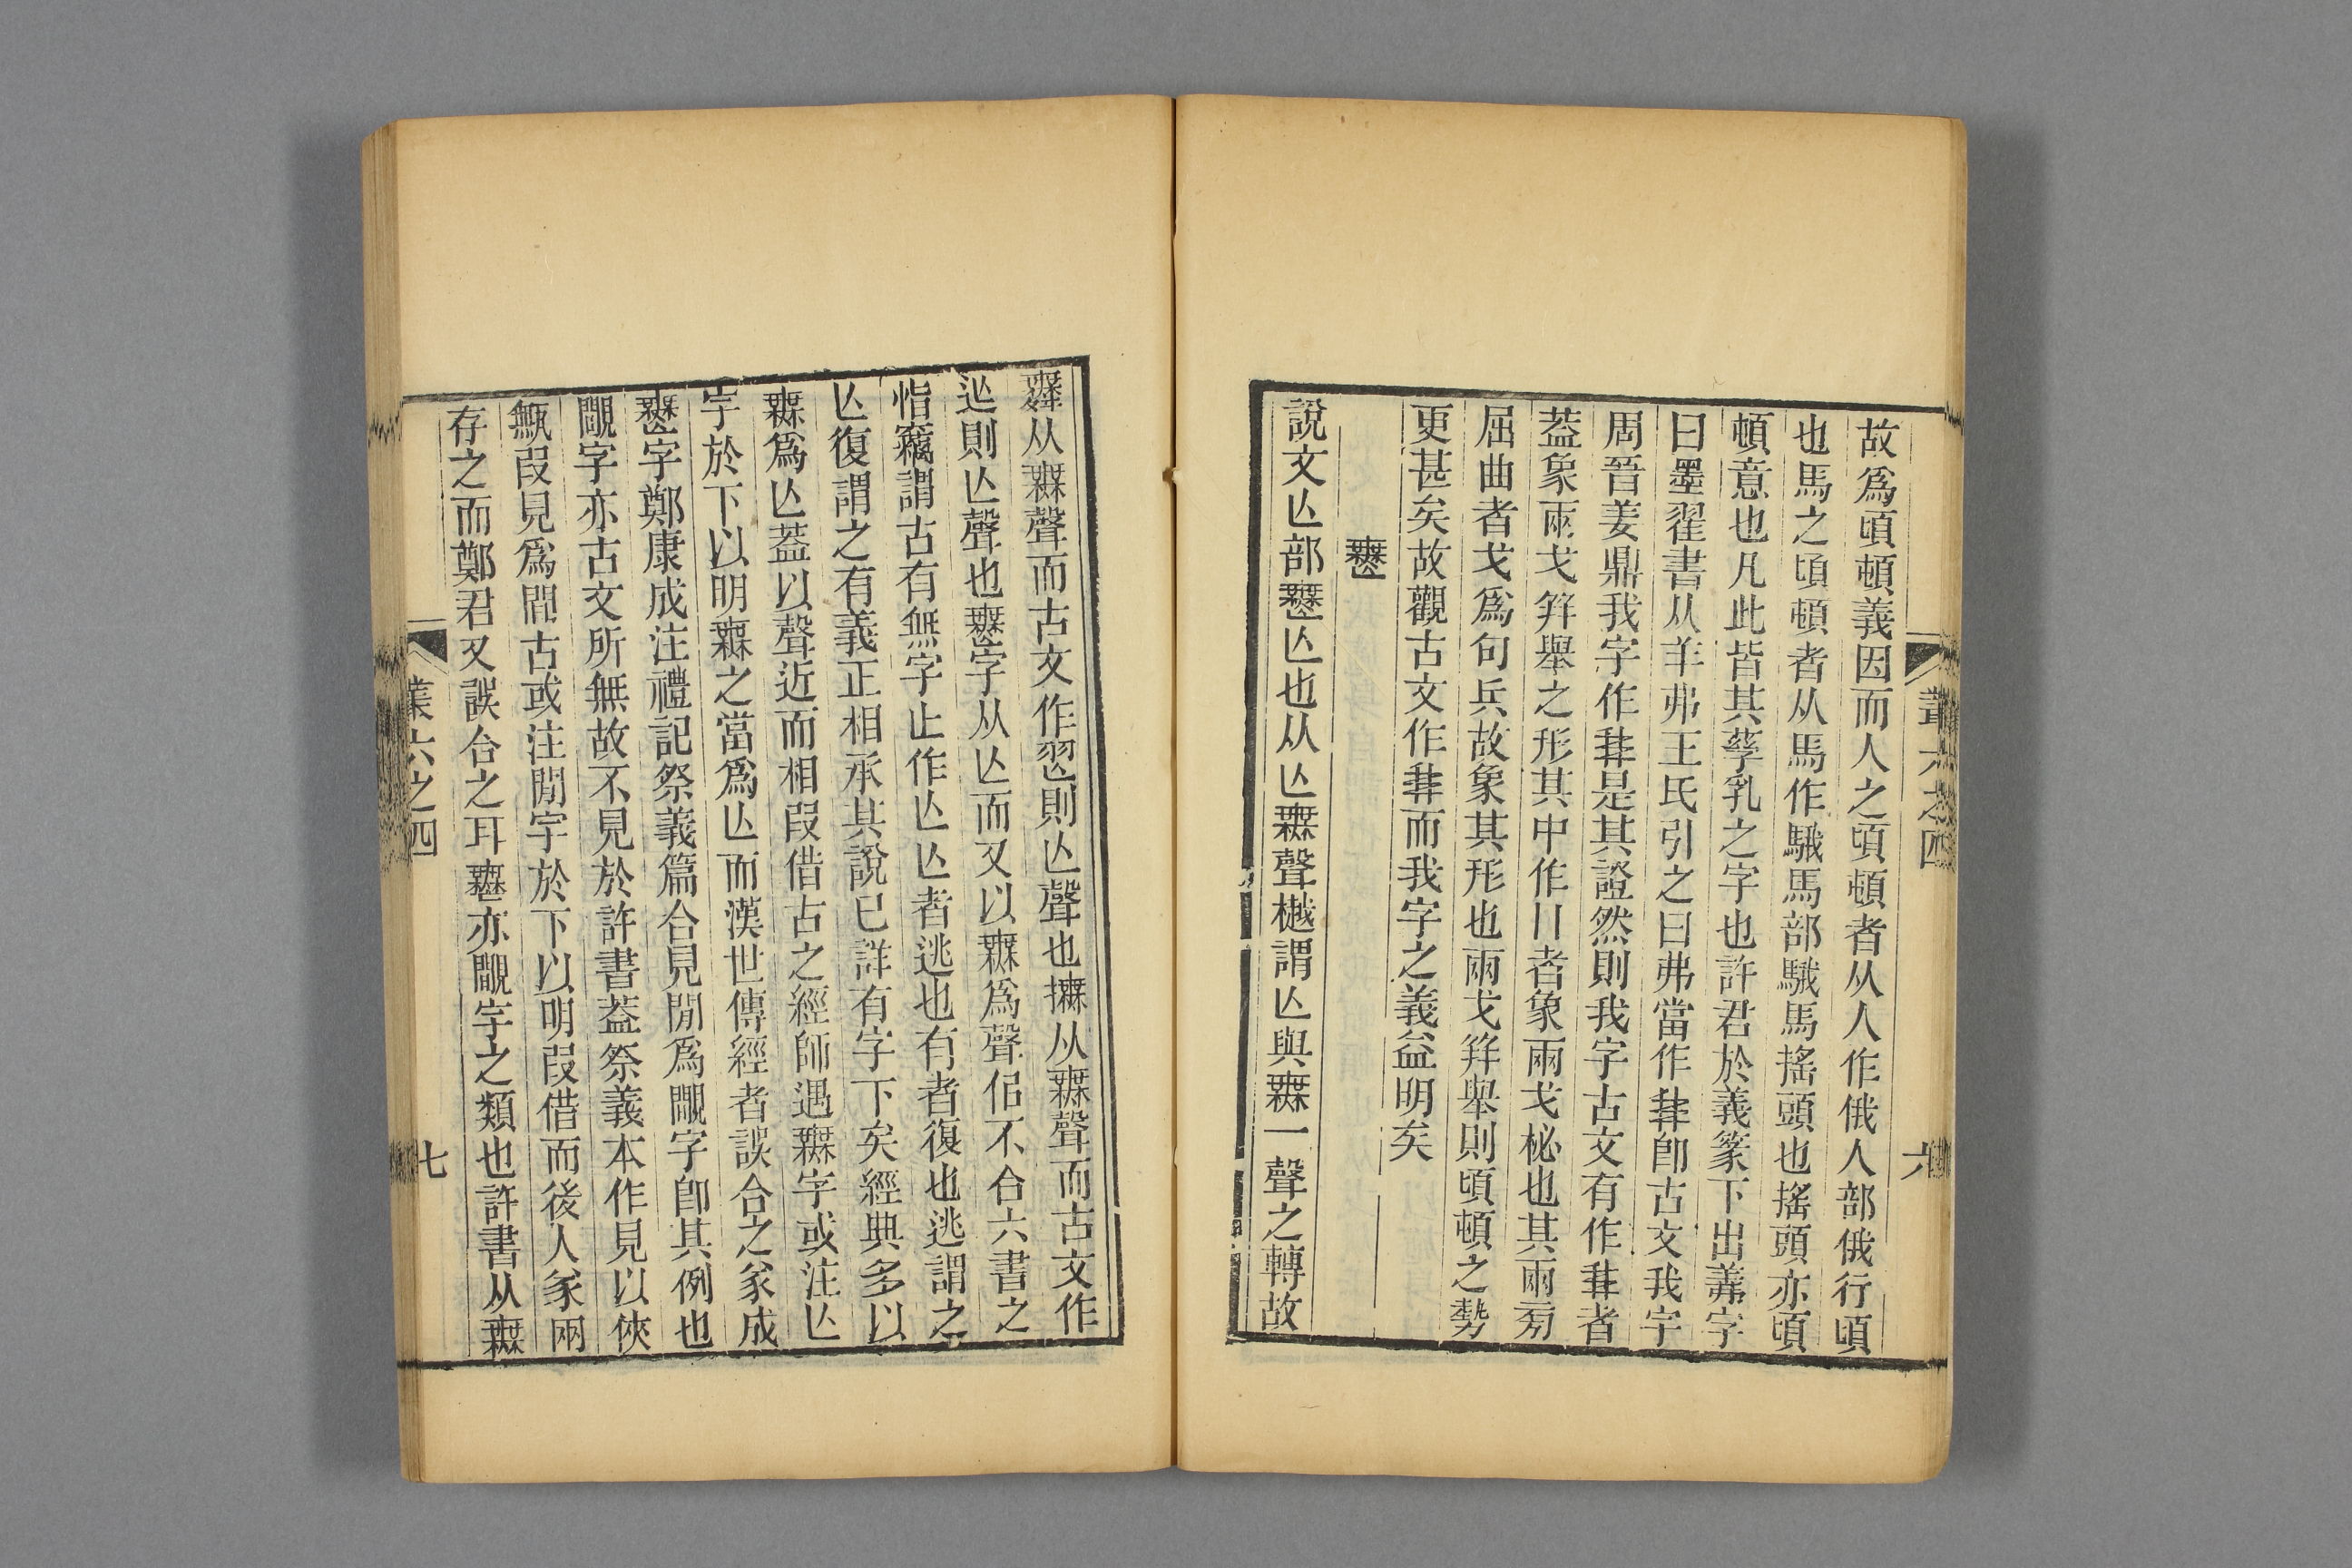 故爲頃頓義因而人之頃頓者从人作俄人部俄行頃
也馬之頃頓者从馬作騀馬部騀馬搖頭也搖頭亦頃
頓意也凡此皆其孳乳之字也許君於義篆下出羛字
曰墨翟書从羊弗王氏引之曰弗當作𢦓卽古文我字
周晉姜鼎我字作𢦓是其證然則我字古文有作𢦓者
葢象兩戈竝舉之形其中作〢者象兩戈柲也其兩旁
屈曲者戈爲句兵故象其形也兩戈竝舉則頃頓之勢
更甚矣故觀古文作𢦓而我字之義益明矣
𣞤
說文亾部𣞤亾也从亾𣞣聲樾謂亾與𣞣一聲之轉故
叢六之四
六
舞从𣞣聲而古文作𦏶則亾聲也撫从𣞣聲而古文作
𨒪則亾聲也𣞤字从亾而又以𣞣爲聲侣不合六書之
恉竊謂古有無字止作亾亾者逃也有者復也逃謂之
亾復謂之有義正相承其說已詳有字下矣經典多以
𣞣爲亾葢以聲近而相叚借古之經師遇𣞣字或注亾
字於下以明𣞣之當爲亾而漢世傳經者誤合之㒸成
𣞤字鄭康成注禮記祭義篇合見閒爲覸字卽其例也
覸字亦古文所無故不見於許書葢祭義本作見以俠
甒叚見爲閒古或注閒字於下以明叚借而後人㒸兩
存之而鄭君又誤合之耳𣞤亦覸字之類也許書从𣞣
叢六之四
七